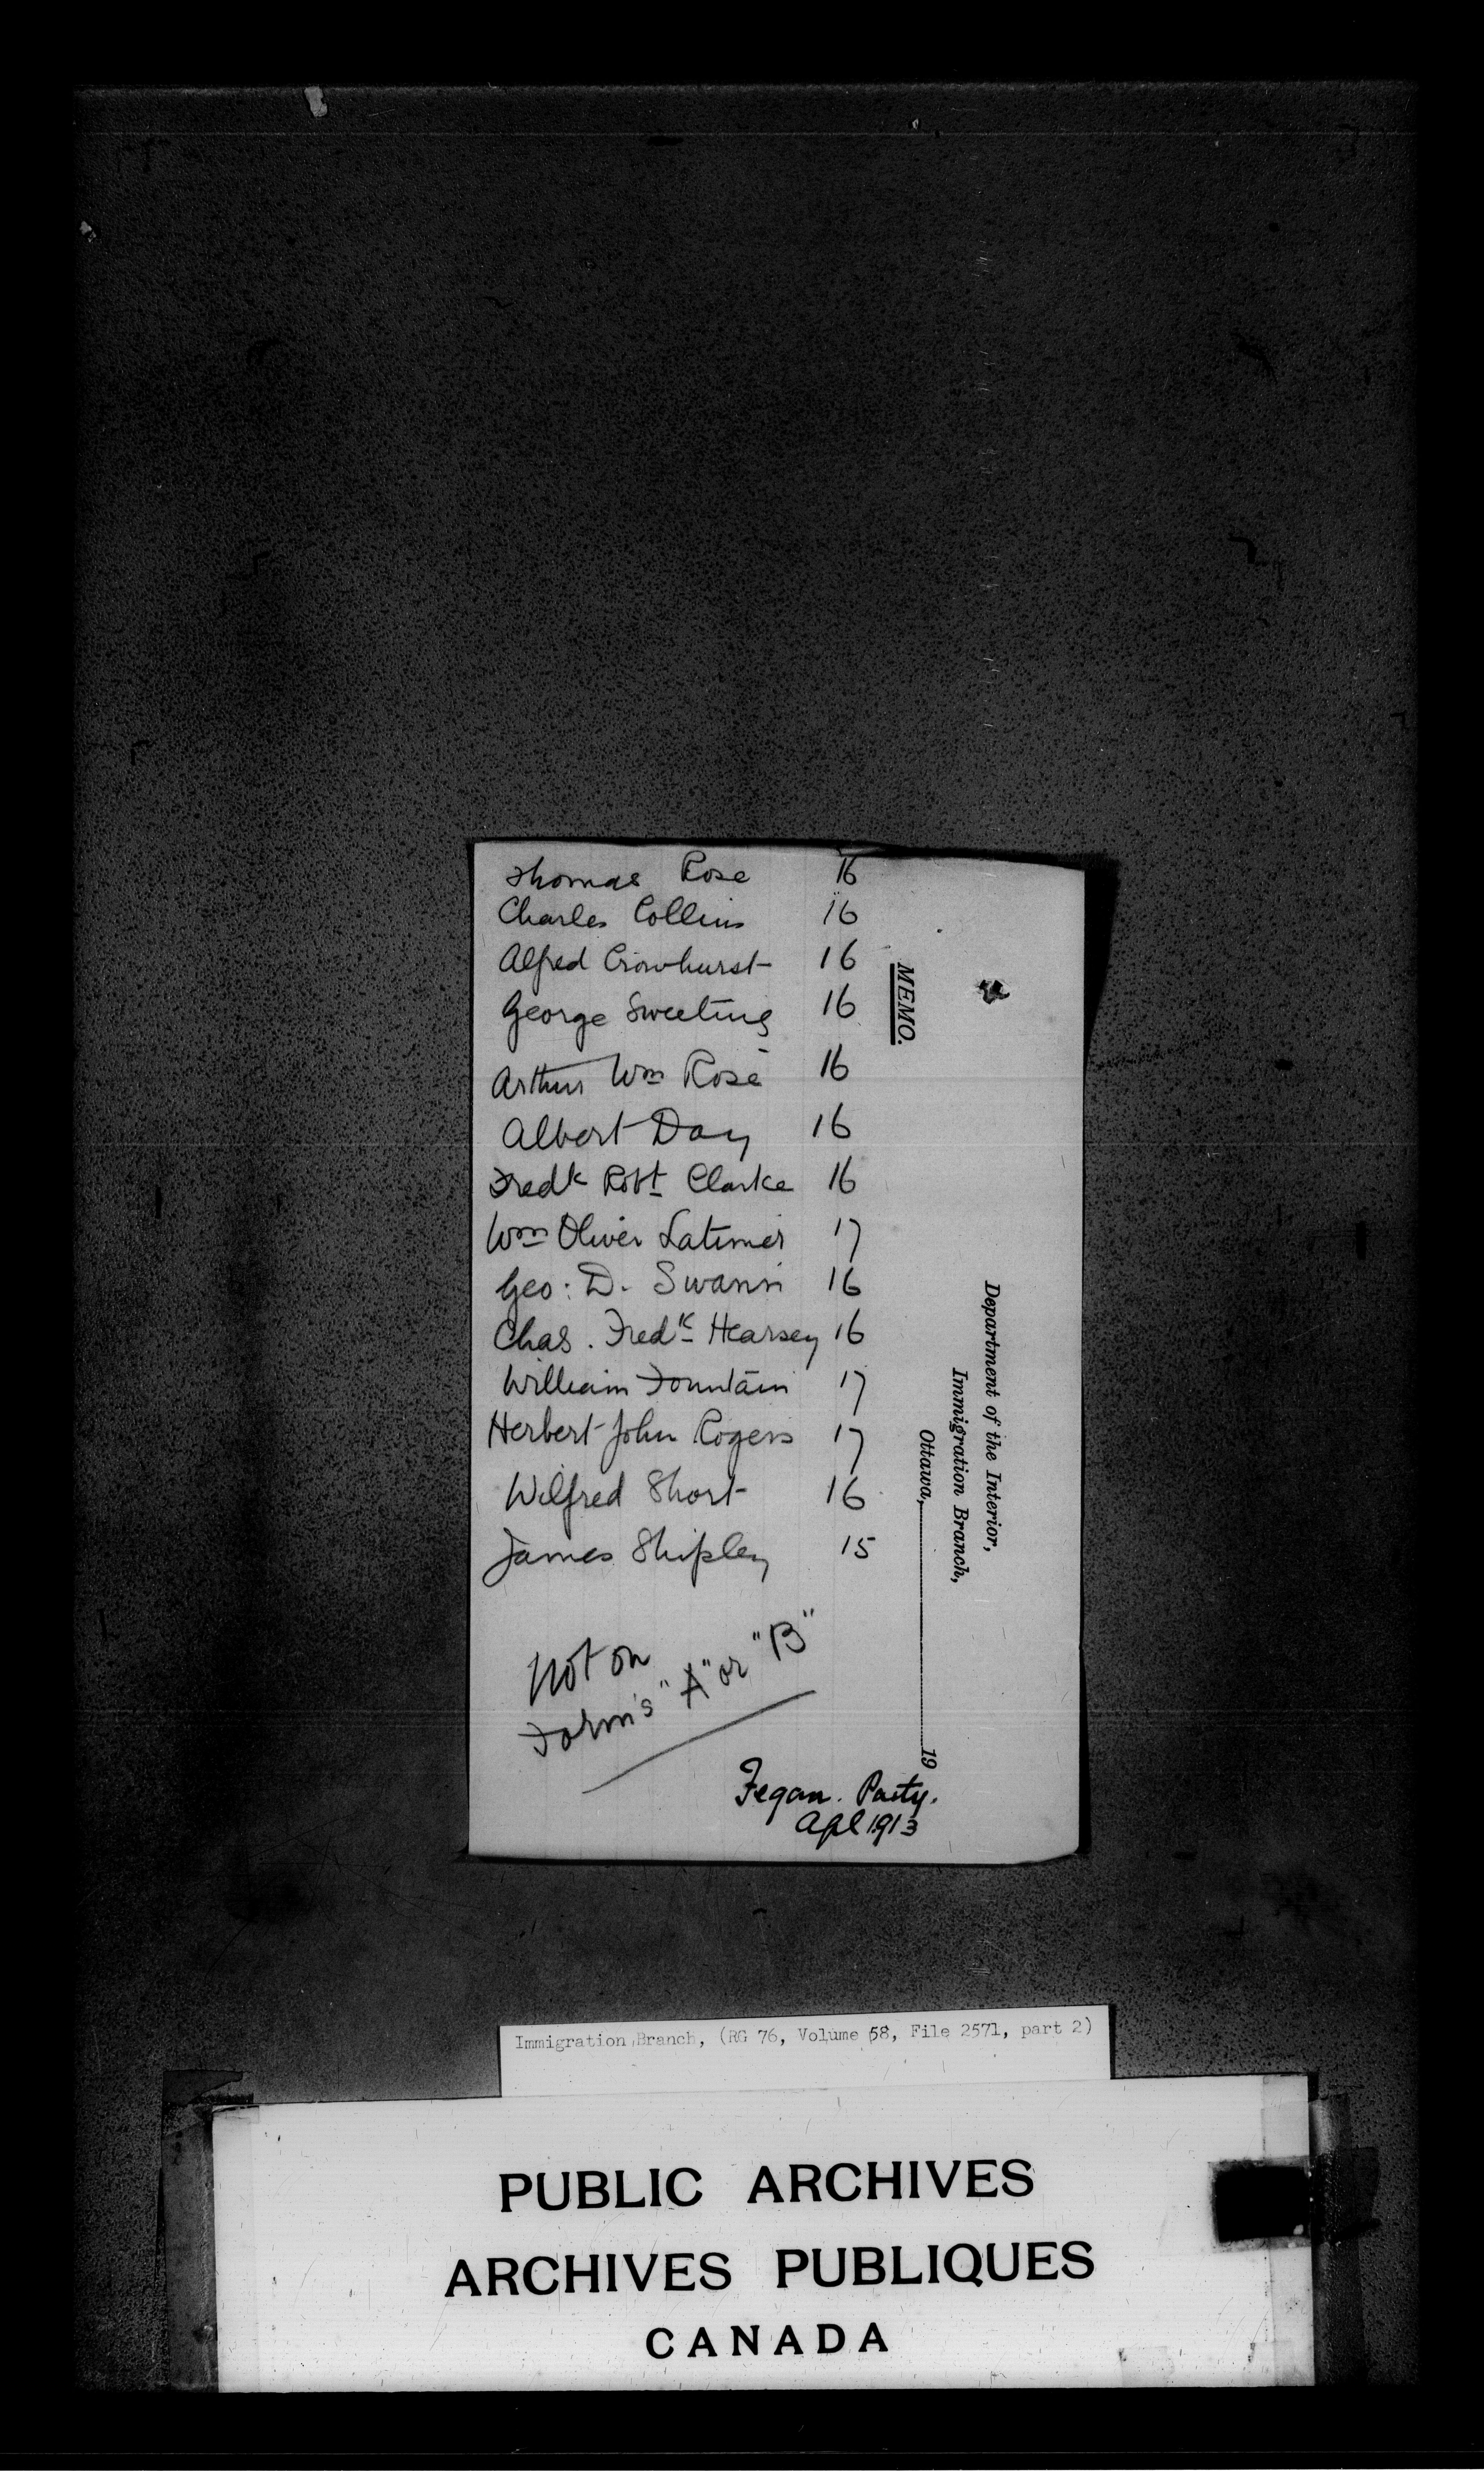 Thomas Rose 16
Charles Collins 16
Alfred Crowhurst 16
George Sweeting 16
Arthur Wm Rose 16
Albert Day 16
Fredk Robt Clarke 16
Wm Oliver Latimer 17
Geo: D. Swann 16
Chas. Fredk Hearsey 16
William Fountain 17
Herbert John Rogers 17
Wilfred Short 16
James Shipley 15
Not on
Form's "A" or "B"
Fegan. Party.
Apl 1913
Department of the Interior,
Immigration Branch,
Ottawa, 19
MEMO.
Immigration Branch, (RG 76, Volume 58, File 2571, part 2)
PUBLIC ARCHIVES
ARCHIVES PUBLIQUES
CANADA